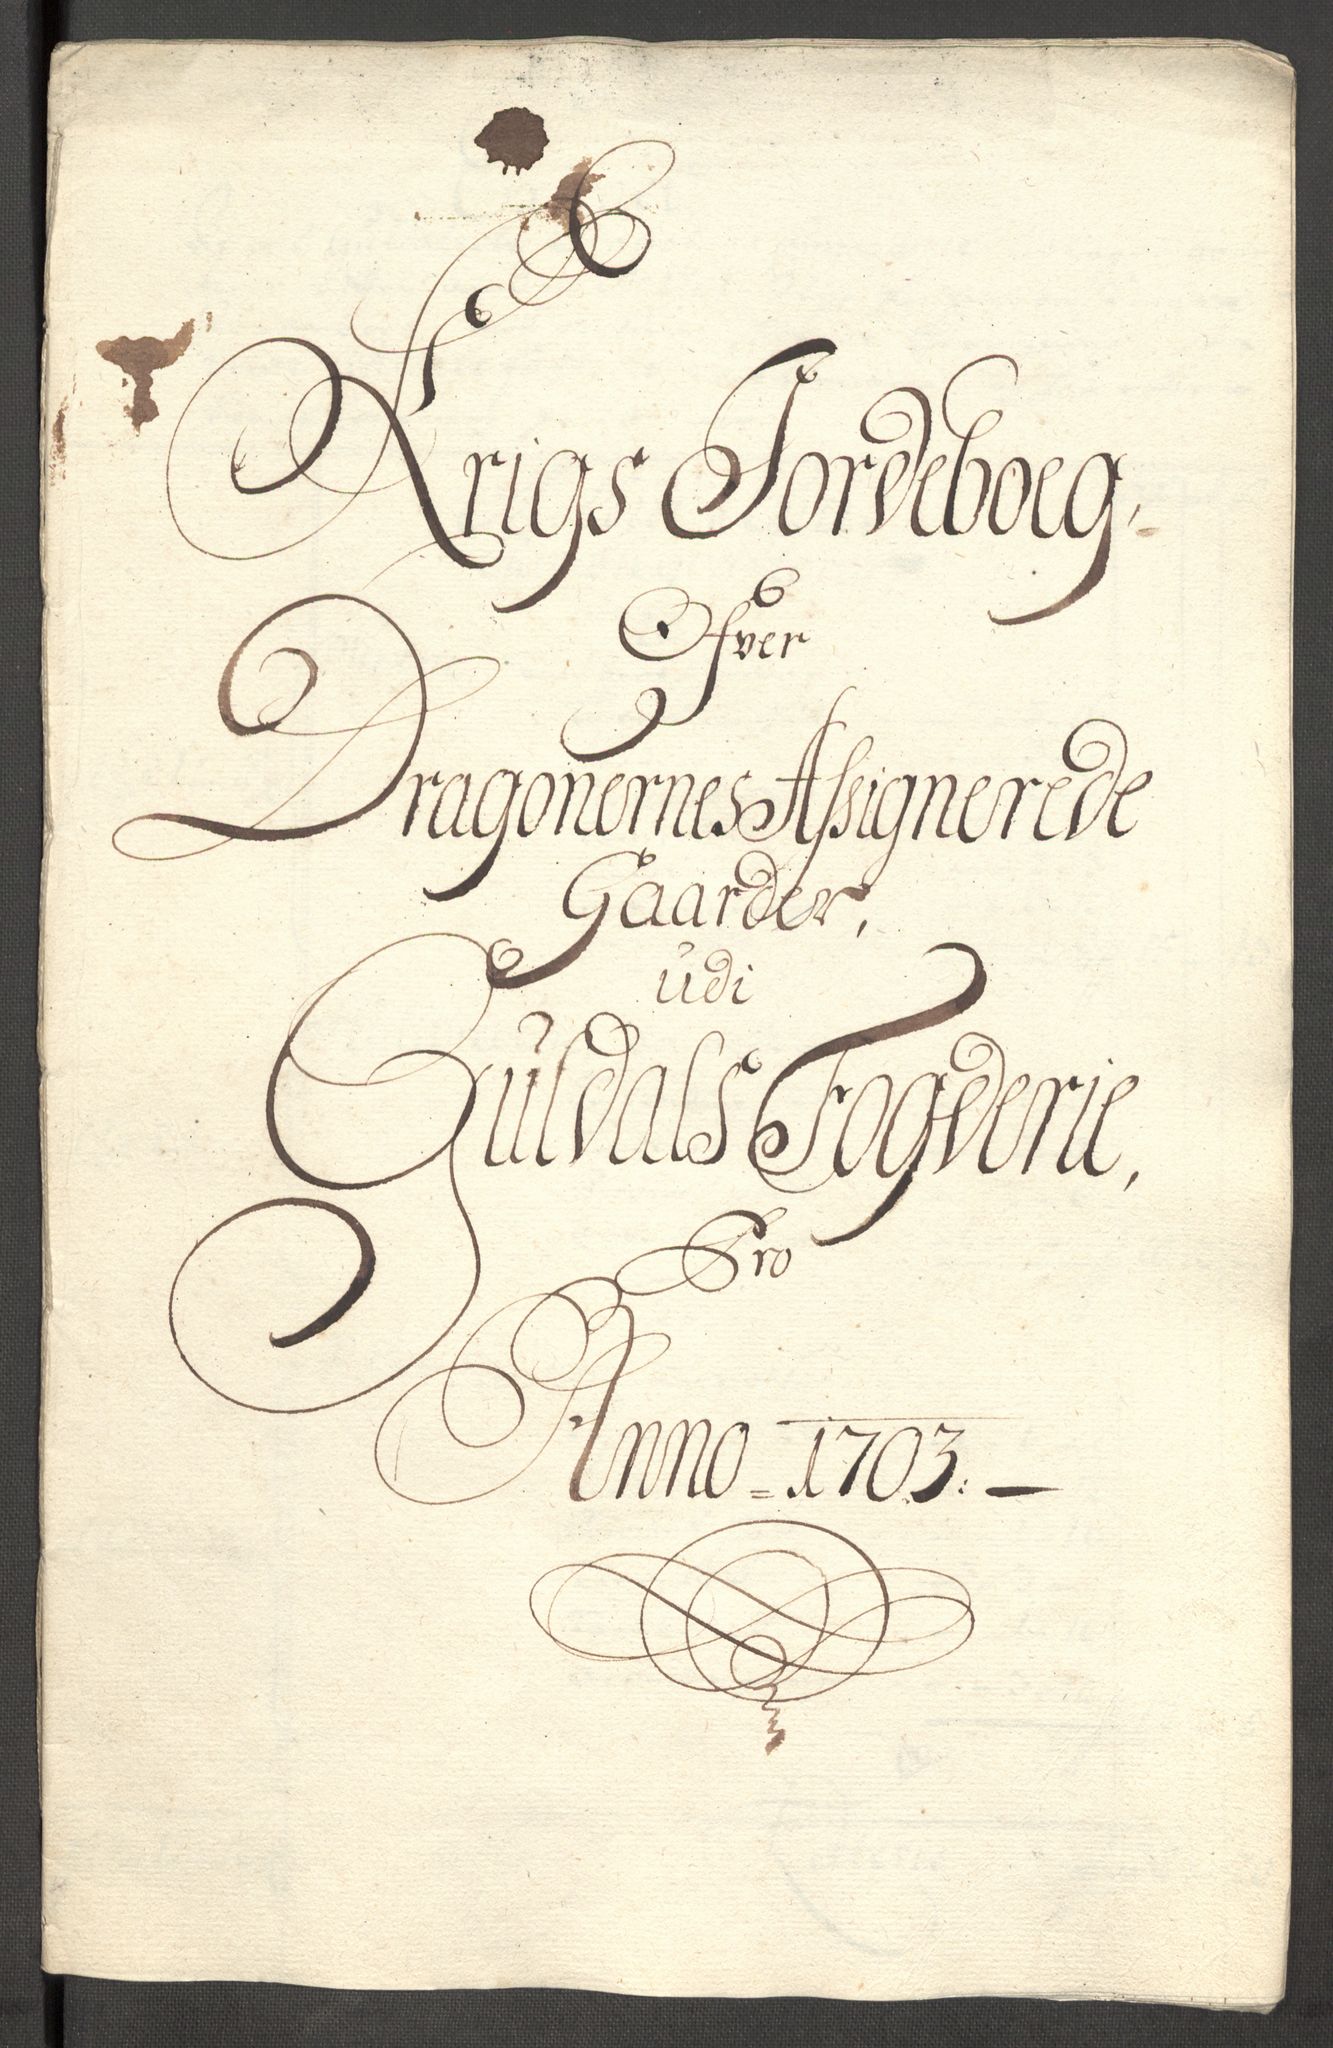 Krigs Jordeboeg,
Ofver
Dragonernes Assignerede
Gaarder,
udi
Guldals Fogderie,
Pro
Anno = 1703. —